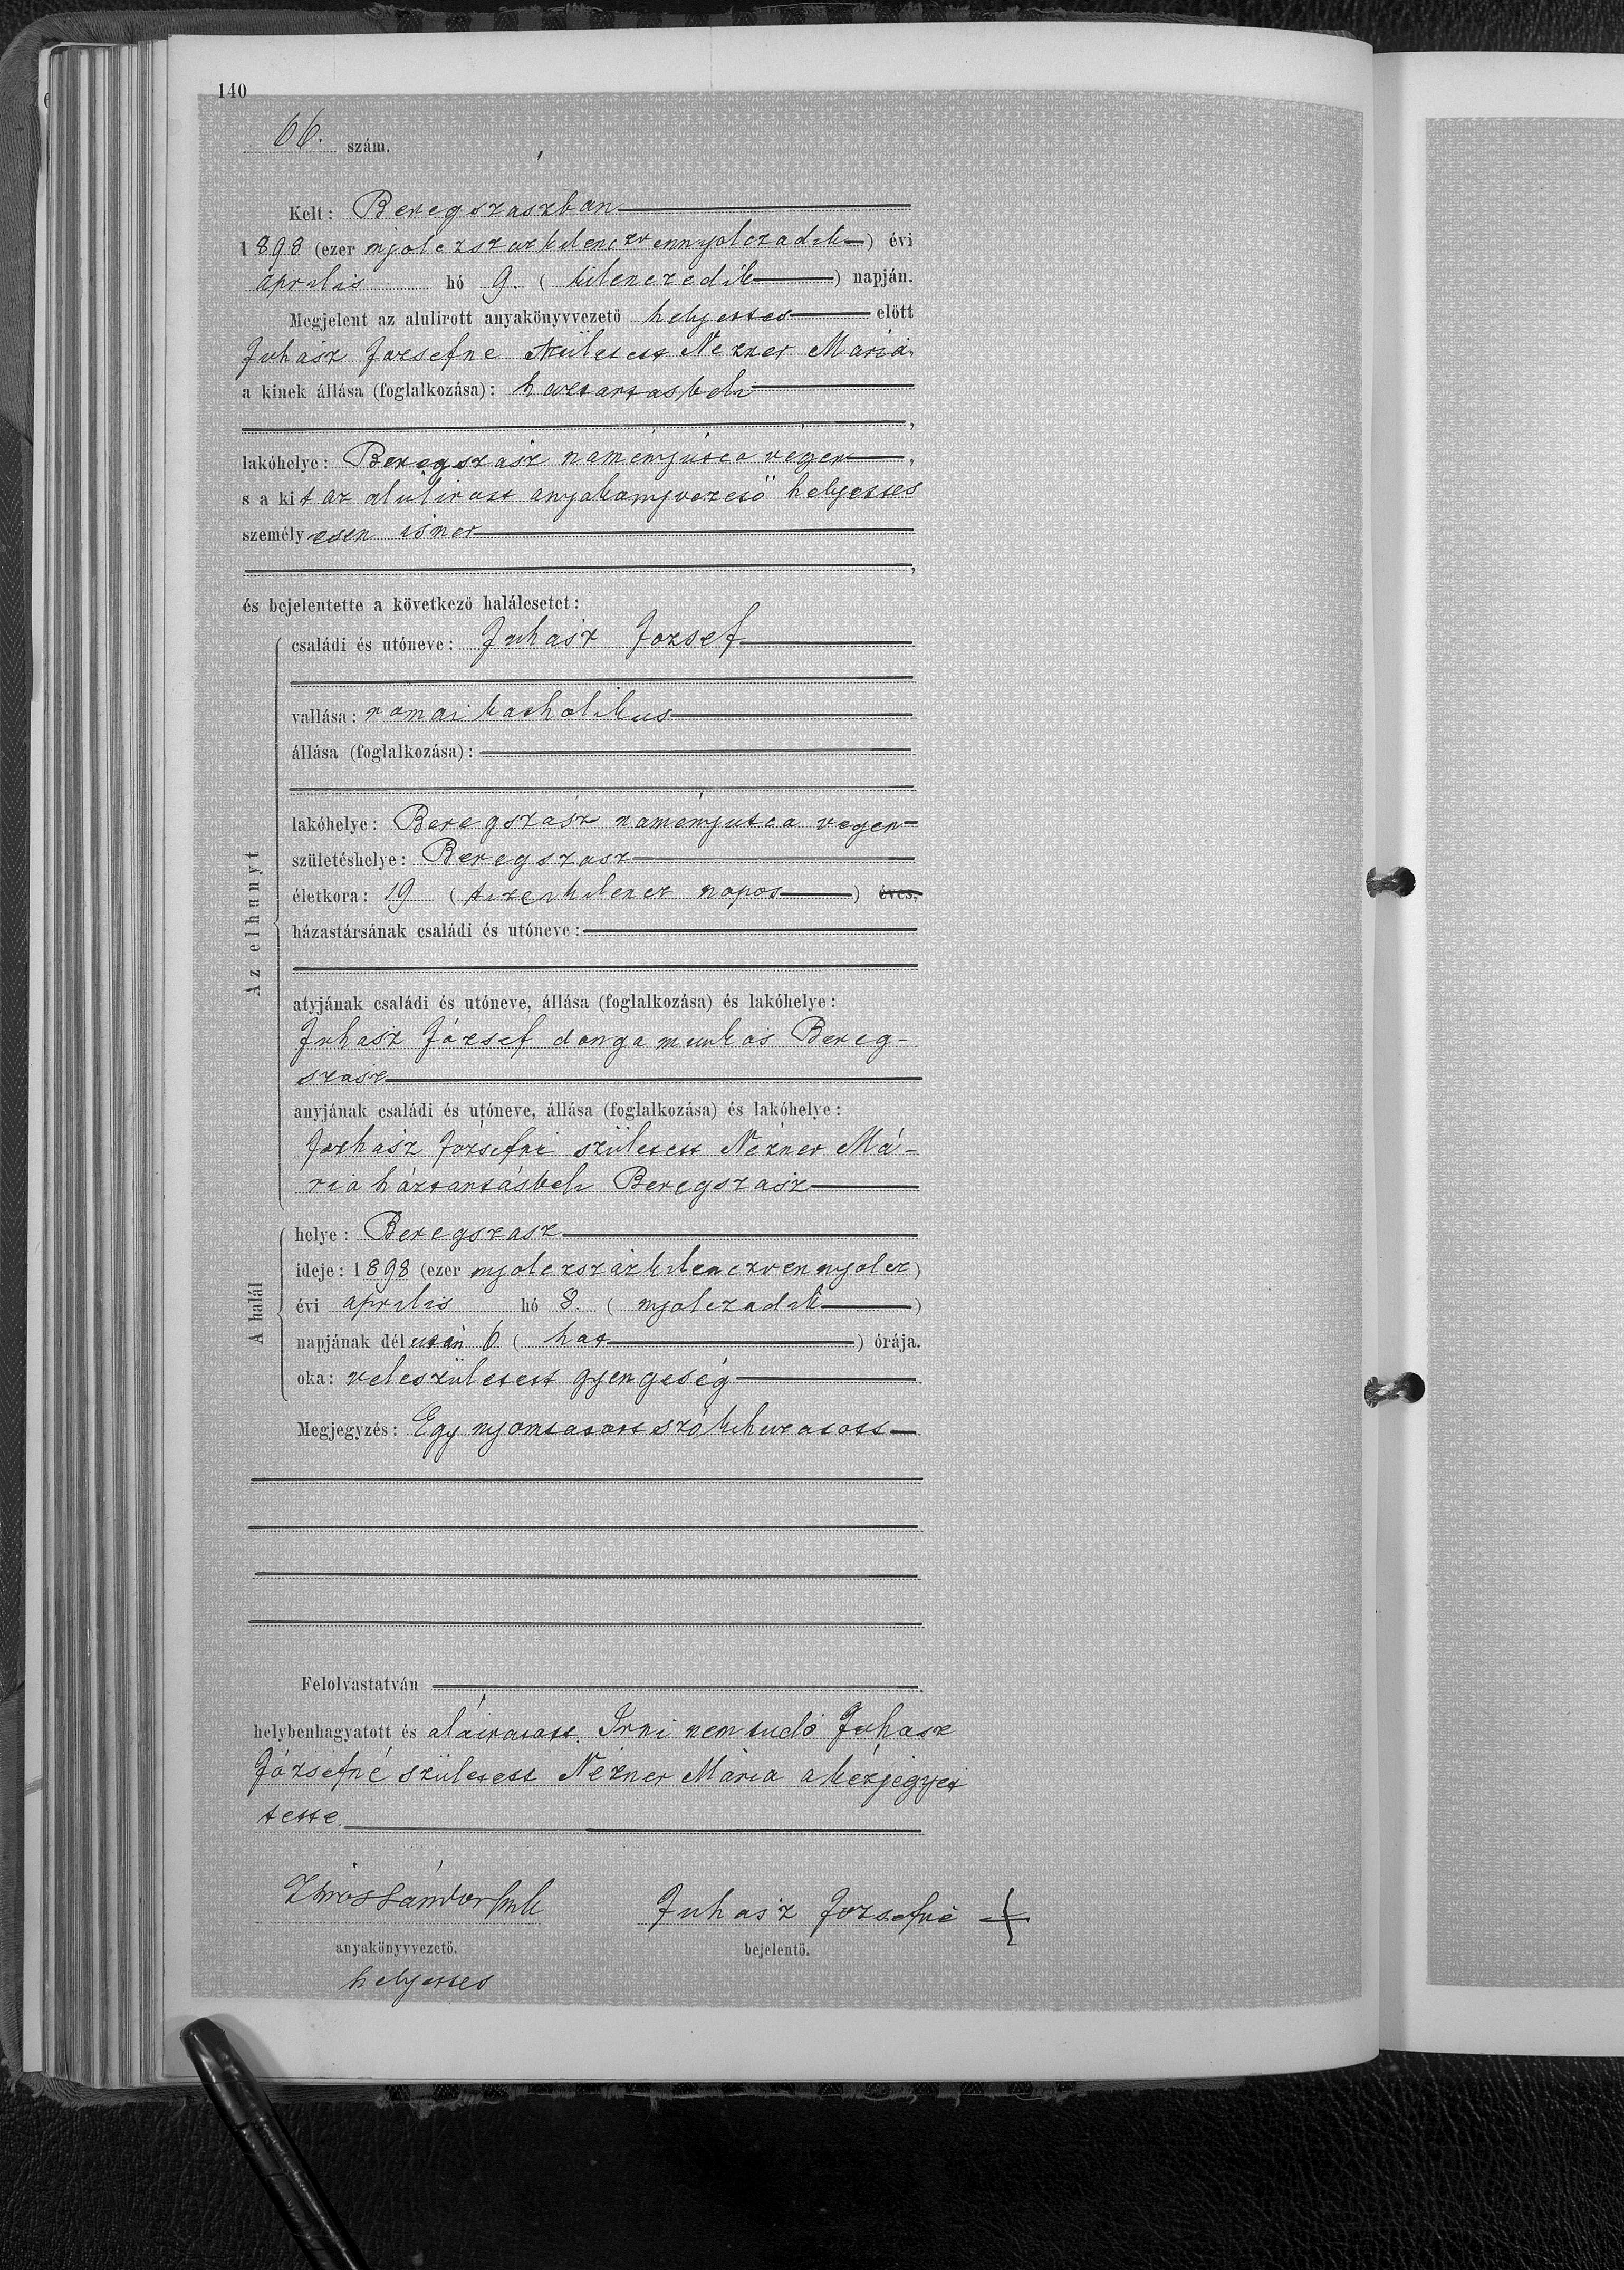 140
66. szám.
Kelt: Beregszaszban
1898 (ezer njolczszazkilenczvennyolczadik) évi
április hó 9. (kilenczedik) napján.
Megjelent az alulirott anyakönyvvezető helyettes előtt
Juhász Jozsefne született Nézner Mariá
a kinek állása (foglalkozása): haztartasbeli
,
lakóhelye: Beregszász naményiutca végen,
s a kit az alulirott anyakönyvvezető helyettes
személyesen ismer
,
és bejelentette a következő halálesetet:
Az elhunyt
családi és utóneve: Juhász Jozsef
vallása: romai katholikus
állása (foglalkozása):
lakóhelye: Beregszász naményiutca vegen
születéshelye: Beregszasz
életkora: 19 (tizenkilencz napos) éves,
házastársának családi és utóneve:
atyjának családi és utóneve, állása (foglalkozása) és lakóhelye:
Juhász József donga munkás Bereg-
szász
anyjának családi és utóneve, állása (foglalkozása) és lakóhelye:
Juhász Józsefné született Nézner Má-
ria háztartásbeli Beregszász
A halál
helye: Beregszasz
ideje: 1898 (ezer njolczszázkilenczvennyolcz)
évi április hó 8. (njolczadik)
napjának délután 6 (hat) órája.
oka: veleszületett gyengeség
Megjegyzés: Egy nyomtatott szó kihuzatott
Felolvastatván
helybenhagyatott és aláiratott. Irni nem tudó Juhasz
Józsefné született Nézner Mária a kézjegyet
tette.
Juhász Jozsefné +
anyakönyvvezető. bejelentő.
helyettes